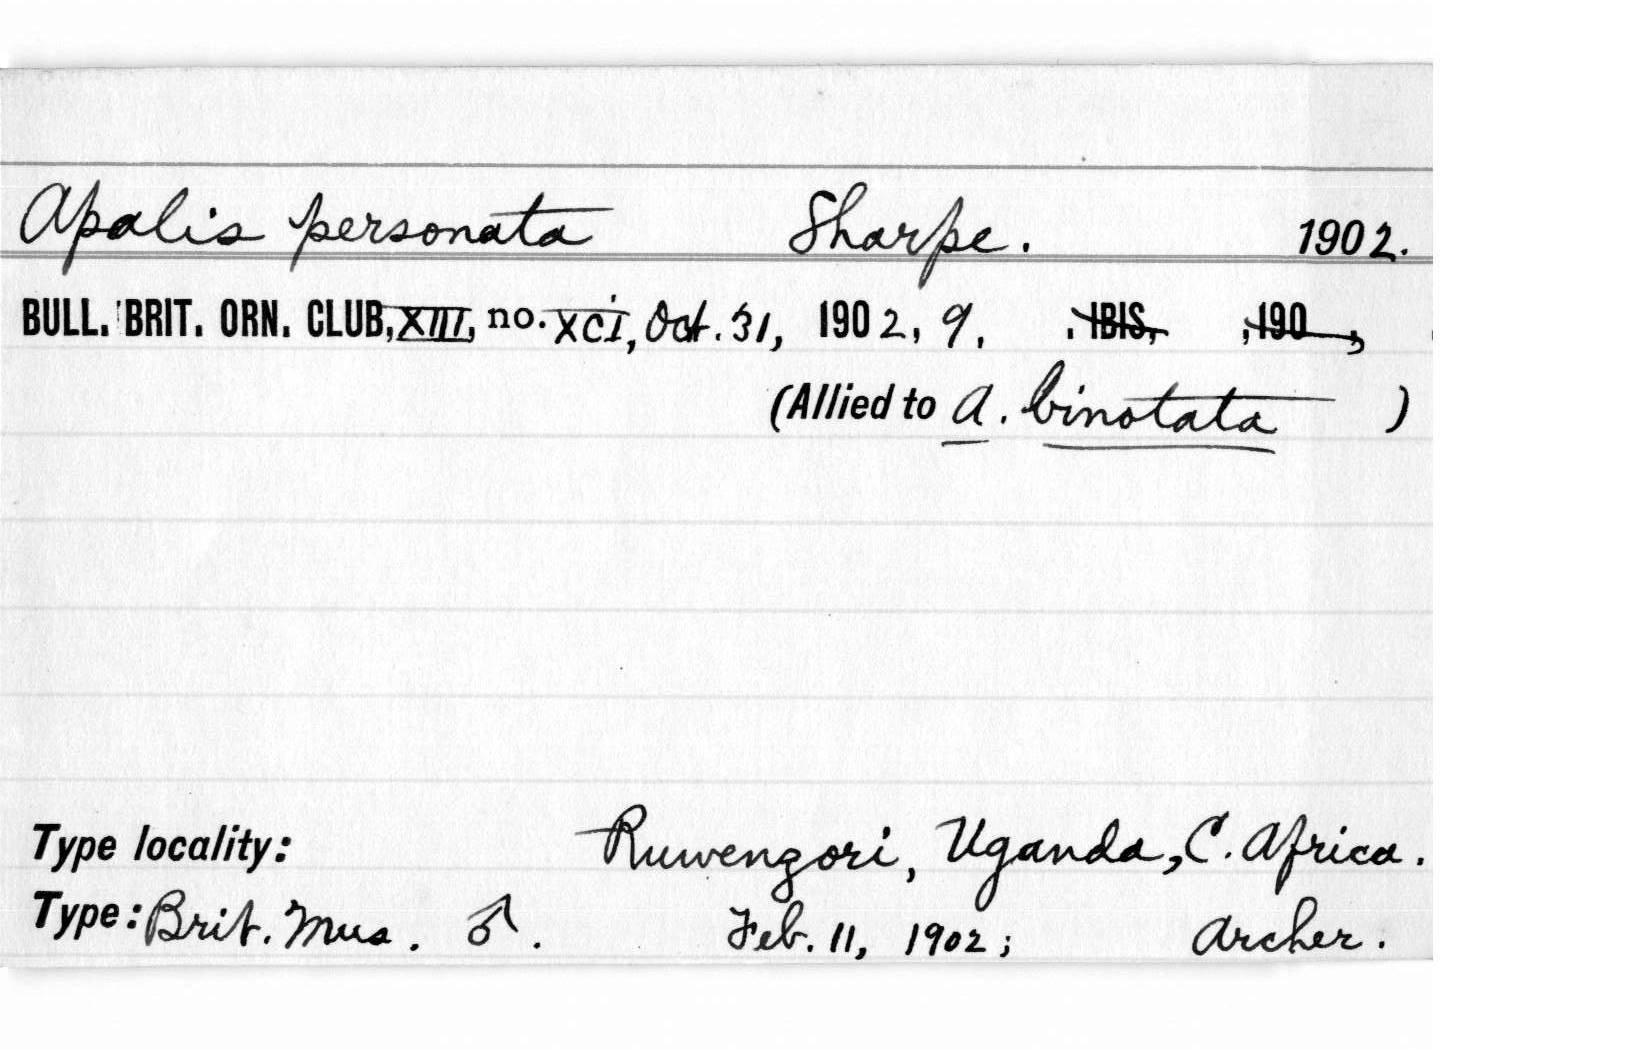 Apalis personata Sharpe. 1902.
BULL. BRIT. ORN. CLUB, XIII, no. XCI, Oct. 31, 1902, 9. . IBIS, , 190 ,
(Allied to A. binotata )
Type locality: Ruwenzori, Uganda, C. Africa.
Type: Brit. Mus. ♂. Feb. 11, 1902; Archer.